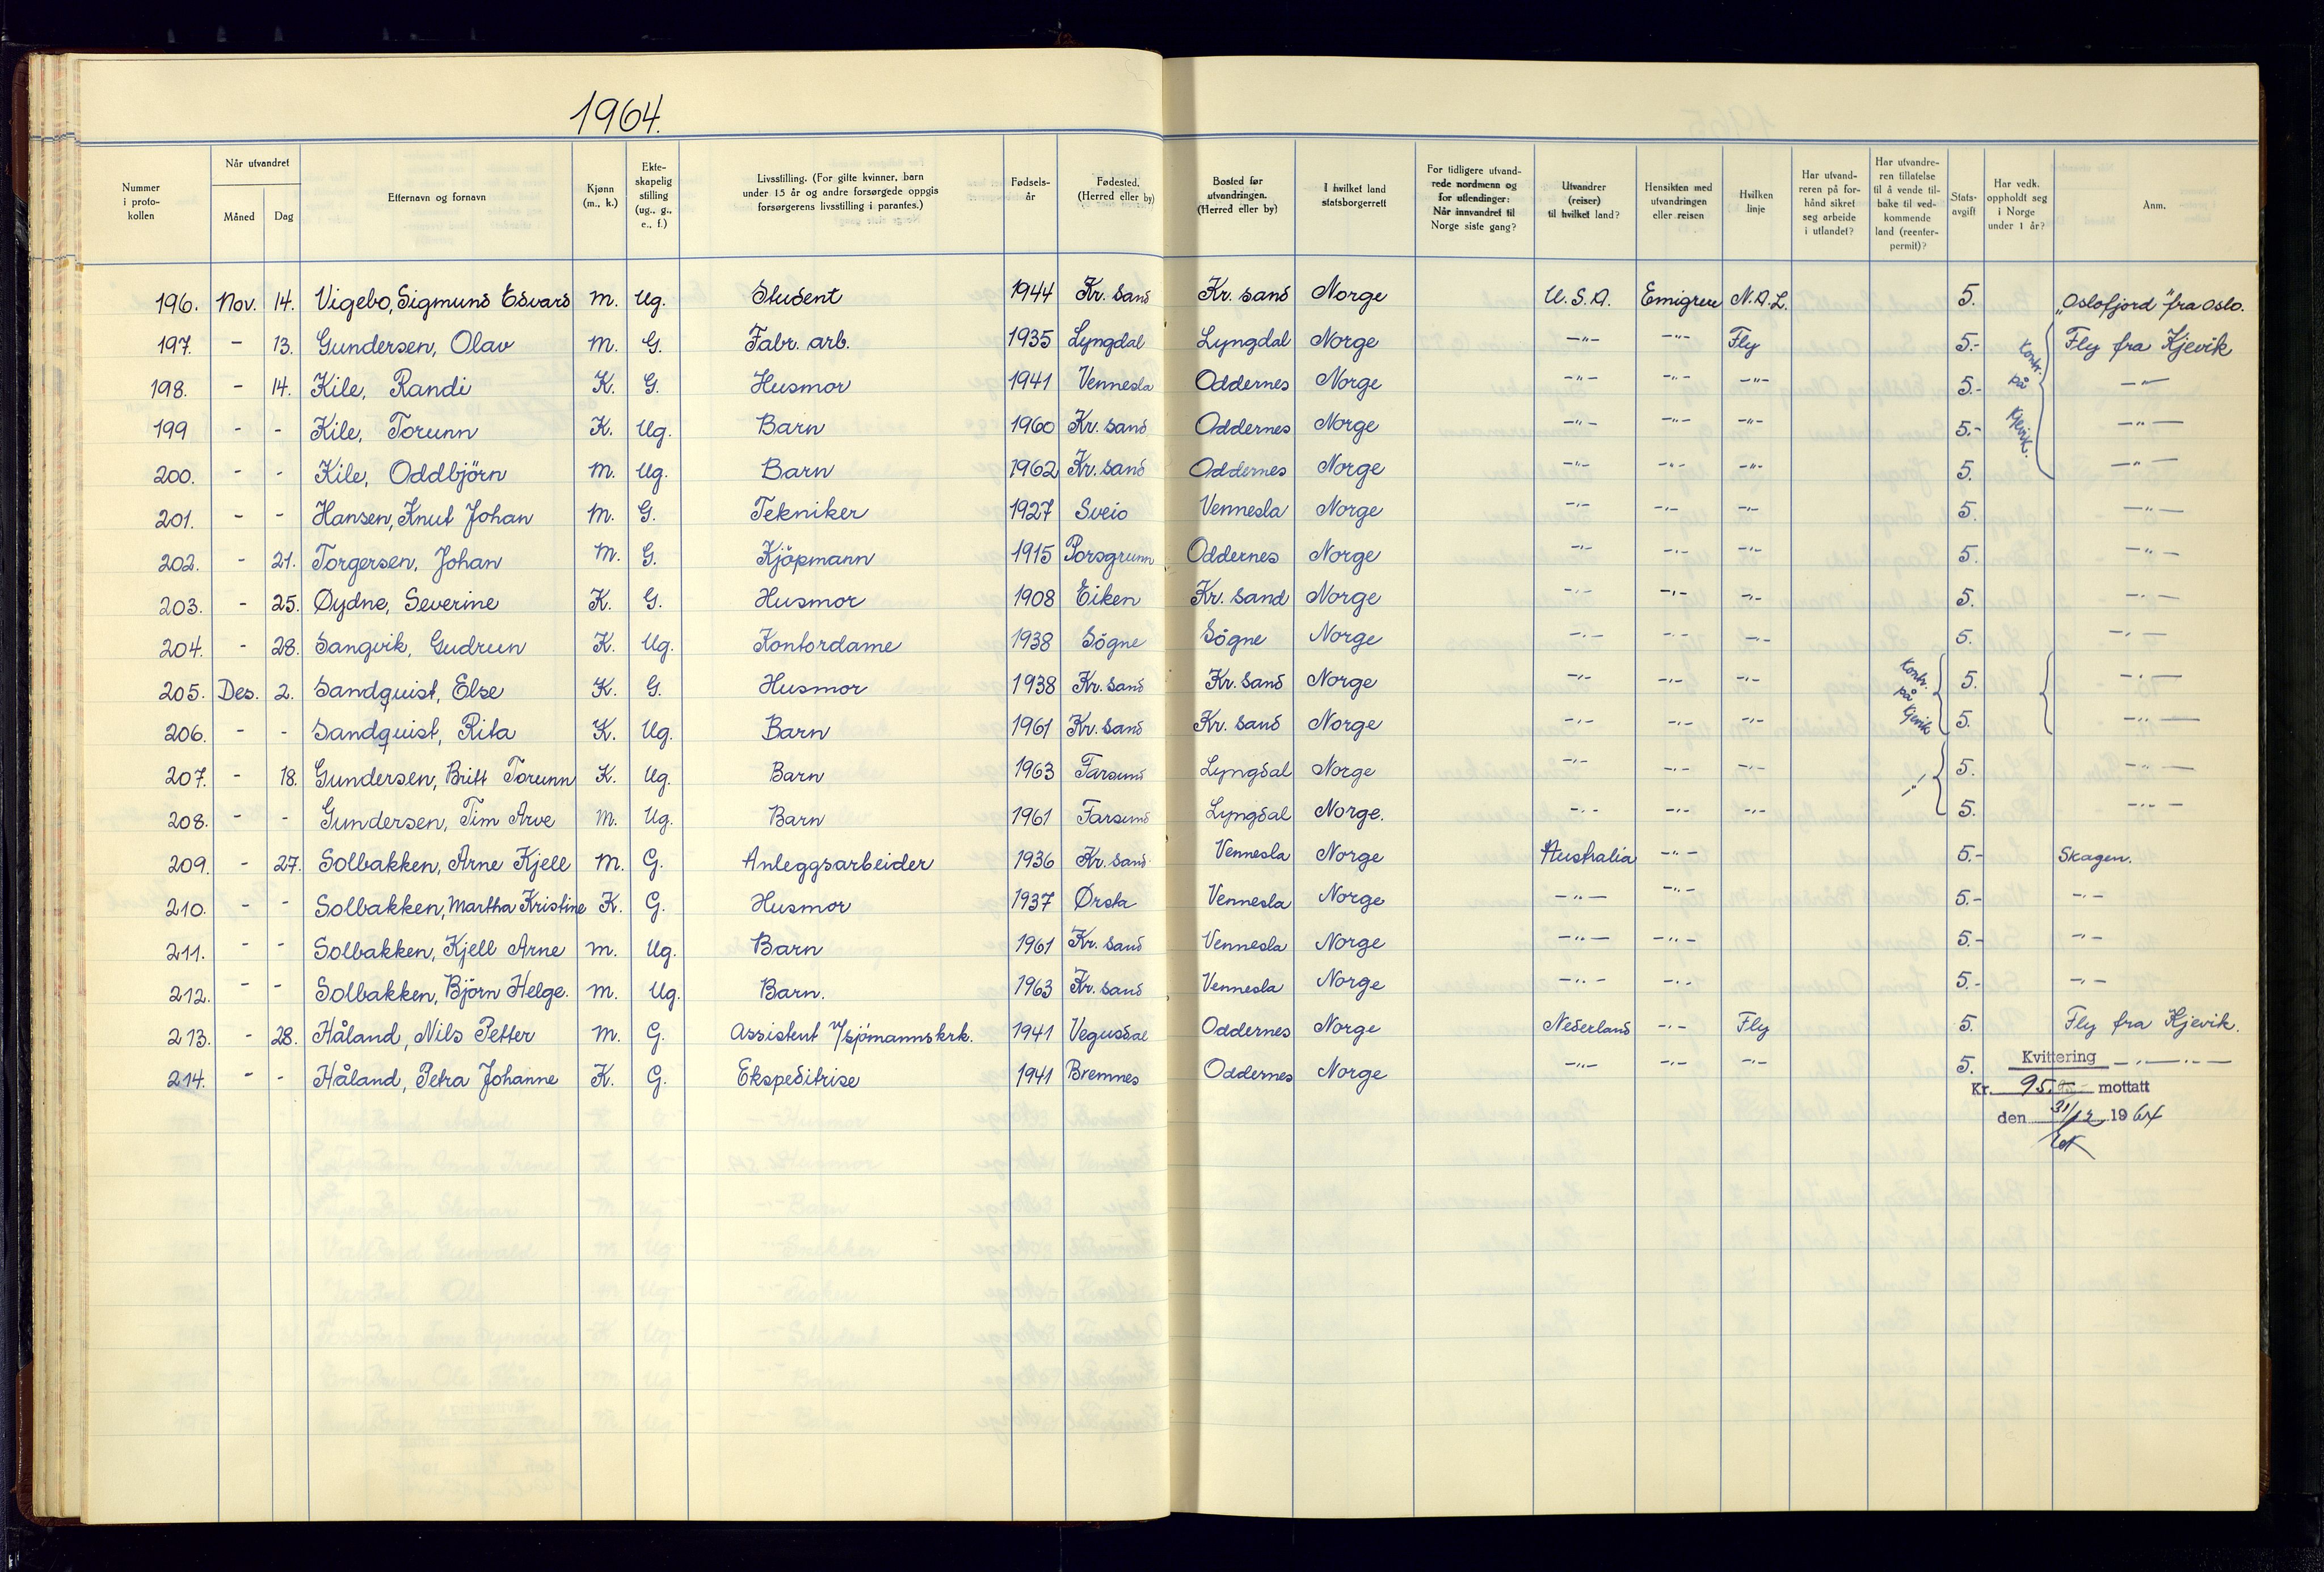 1964.
Nummer i protokollen | Når utvandret Måned | Dag | Etternavn og fornavn | Kjønn (m., k.) | Ekteskapelig stilling (ug., g., e., f.) | Livsstilling. (For gifte kvinner, barn under 15 år og andre forsørgede oppgis forsørgerens livsstilling i parantes.) | Fødselsår | Fødested. (Herred eller by) | Bosted før utvandringen. (Herred eller by) | I hvilket land statsborgerrett | For tidligere utvandrede nordmenn og for utlendinger: Når innvandret til Norge siste gang? | Utvandrer (reiser) til hvilket land? | Hensikten med utvandringen eller reisen | Hvilken linje | Har utvandreren på forhånd sikret seg arbeide i utlandet? | Har utvandreren tillatelse til å vende tilbake til vedkommende land (reenterpermit)? | Statsavgift | Har vedk. oppholdt seg i Norge under 1 år? | Anm.
196. Nov. 14. Vigebo, Sigmund Edvard m. Ug. Student 1944 Kr. sand Kr. sand Norge U.S.A. Emigrere N.A.L. 5. "Oslofjord" fra Oslo.
197. - 13. Gundersen, Olav m. G. Fabr. arb. 1935 Lyngdal Lyngdal Norge -"- -"- Fly 5.- Kontr. på Kjevik. Fly fra Kjevik
198. - 14. Kile, Randi K. G. Husmor 1941 Vennesla Oddernes Norge -"- -"- -"- 5.- -"-
199 - - Kile, Torunn K. Ug. Barn 1960 Kr. sand Oddernes Norge -"- -"- -"- 5.- -"-
200. - - Kile, Oddbjörn m. Ug. Barn 1962 Kr. sand Oddernes Norge -"- -"- -"- 5. -"-
201. - - Hansen, Knut Johan m. G. Tekniker 1927 Sveio Vennesla Norge -"- -"- -"- 5. -"-
202. - 21. Torgersen, Johan m. G. Kjöpmann 1915 Porsgrunn Oddernes Norge -"- -"- -"- 5. -"-
203. - 25. Øydne, Severine K. G. Husmor 1908 Eiken Kr. sand Norge -"- -"- -"- 5. -"-
204. - 28. Sangvik, Gudrun K. Ug. Kontordame 1938 Sögne Sögne Norge -"- -"- -"- 5. -"-
205. Des. 2. Sandquist, Else K. G. Husmor 1938 Kr. sand Kr. sand Norge -"- -"- -"- Kontr. på Kjevik 5. -"-
206. - - Sandquist, Rita K. Ug. Barn 1961 Kr. sand Kr. sand Norge -"- -"- -"- 5. -"-
207. - 18. Gundersen, Britt Torunn K. Ug. Barn 1963 Farsund Lyngdal Norge -"- -"- -"- -"- 5. -"-
208. - - Gundersen, Tim Arve m. Ug. Barn 1961 Farsund Lyngdal Norge. -"- -"- -"- 5. -"-
209. - 27. Solbakken, Arne Kjell m. G. Anleggsarbeider 1936 Kr. sand Vennesla Norge Australia -"- 5.- Skagen.
210. - - Solbakken, Martha Kristine K. G. Husmor 1937 Ørsta Vennesla Norge -"- -"- 5.- -"-
211. - - Solbakken, Kjell Arne m. Ug. Barn 1961 Kr. sand Vennesla Norge -"- -"- 5.- -"-
212. - - Solbakken, Björn Helge. m. Ug. Barn. 1963 Kr. sand Vennesla Norge -"- -"- 5.- -"-
213. - 28. Håland, Nils Petter m. G. Assistent v/sjömannskrk. 1941 Vegusdal Oddernes Norge Nederland -"- Fly 5. Fly fra Kjevik.
214. - - Håland, Petra Johanne K. G. Ekspeditrise 1941 Bremnes Oddernes Norge -"- -"- -"- 5. -"-
Kvittering
Kr. 95.- mottatt
den 31/12 1964